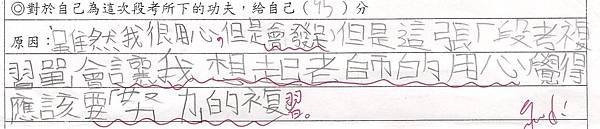 ◎對於自己為這次段考所下的功夫,給自己(95)分
原因:雖然我很用心,但是會發呆但是這張「段考複
習單」會讓我想起老師的用心覺得
應該要「努力的複習。
Good!